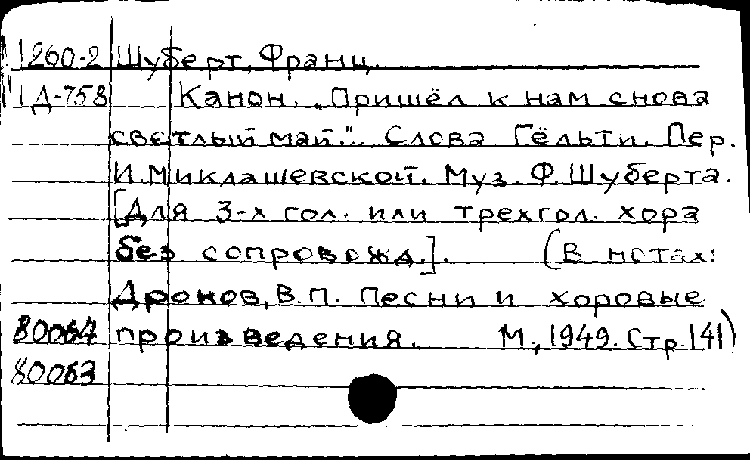 1260-2 Шуберт, Франц.
1Д-758 Канон. "Пришёл к нам снова
светлый май". Слова Гёльти. Пер.
И. Миклашевской. Муз. Ф. Шуберта.
[Для 3-х гол. или трехгол. хора
без сопровожд.]. (В нотах:
Дронов, В.П. Песни и хоровые
80064 произведения. М., 1949. Стр. 141)
80063